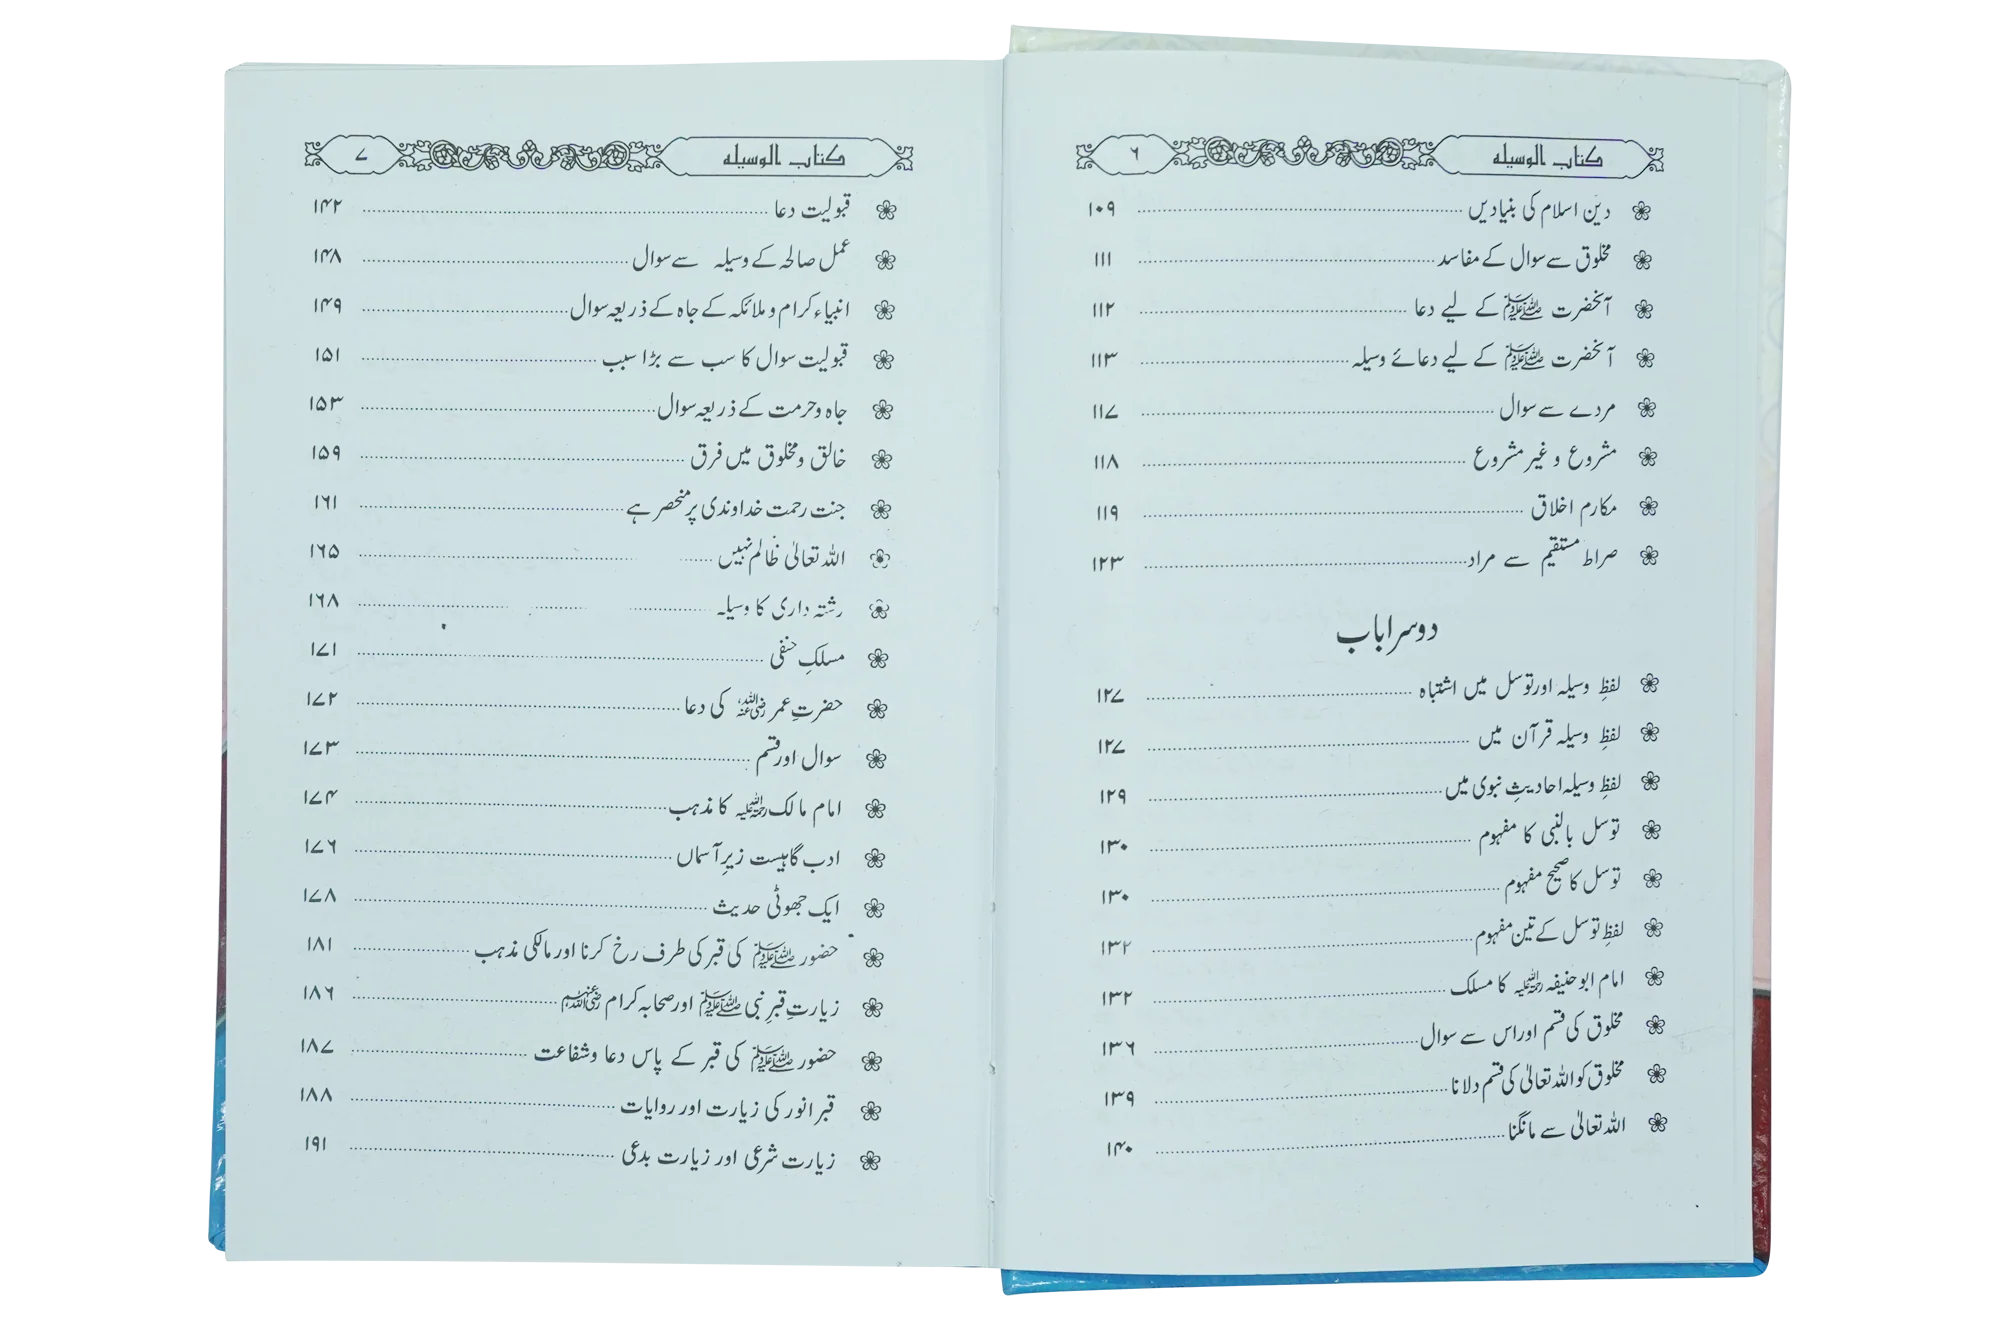 کتاب الوسیلہ ۶
دین اسلام کی بنیادیں ۱۰۹
مخلوق سے سوال کے مفاسد ۱۱۱
آنحضرت ﷺ کے لیے دعا ۱۱۲
آنحضرت ﷺ کے لیے دعائے وسیلہ ۱۱۳
مردے سے سوال ۱۱۷
مشروع و غیر مشروع ۱۱۸
مکارم اخلاق ۱۱۹
صراط مستقیم سے مراد ۱۲۳
دوسرا باب
لفظِ وسیلہ اور توسل میں اشتباہ ۱۲۷
لفظِ وسیلہ قرآن میں ۱۲۷
لفظِ وسیلہ احادیثِ نبوی میں ۱۲۹
توسل بالنبی کا مفہوم ۱۳۰
توسل کا صحیح مفہوم ۱۳۰
لفظِ توسل کے تین مفہوم ۱۳۲
امام ابوحنیفہ رحمۃ اللہ علیہ کا مسلک ۱۳۲
مخلوق کی قسم اور اس سے سوال ۱۳۶
مخلوق کو اللہ تعالیٰ کی قسم دلانا ۱۳۹
اللہ تعالیٰ سے مانگنا ۱۴۰
کتاب الوسیلہ ۷
قبولیت دعا ۱۴۲
عمل صالحہ کے وسیلہ سے سوال ۱۴۸
انبیاء کرام و ملائکہ کے جاہ کے ذریعہ سوال ۱۴۹
قبولیت سوال کا سب سے بڑا سبب ۱۵۱
جاہ و حرمت کے ذریعہ سوال ۱۵۳
خالق و مخلوق میں فرق ۱۵۹
جنت رحمت خداوندی پر منحصر ہے ۱۶۱
اللہ تعالیٰ ظالم نہیں ۱۶۵
رشتہ داری کا وسیلہ ۱۶۸
مسلکِ حنفی ۱۷۱
حضرتِ عمر رضی اللہ عنہ کی دعا ۱۷۲
سوال اور قسم ۱۷۳
امام مالک رحمۃ اللہ علیہ کا مذہب ۱۷۴
ادب گاہیست زیرِ آسماں ۱۷۶
ایک جھوٹی حدیث ۱۷۸
حضور ﷺ کی قبر کی طرف رخ کرنا اور مالکی مذہب ۱۸۱
زیارتِ قبرِ نبی ﷺ اور صحابہ کرام رضی اللہ عنہم ۱۸۶
حضور ﷺ کی قبر کے پاس دعا و شفاعت ۱۸۷
قبر انور کی زیارت اور روایات ۱۸۸
زیارت شرعی اور زیارت بدعی ۱۹۱